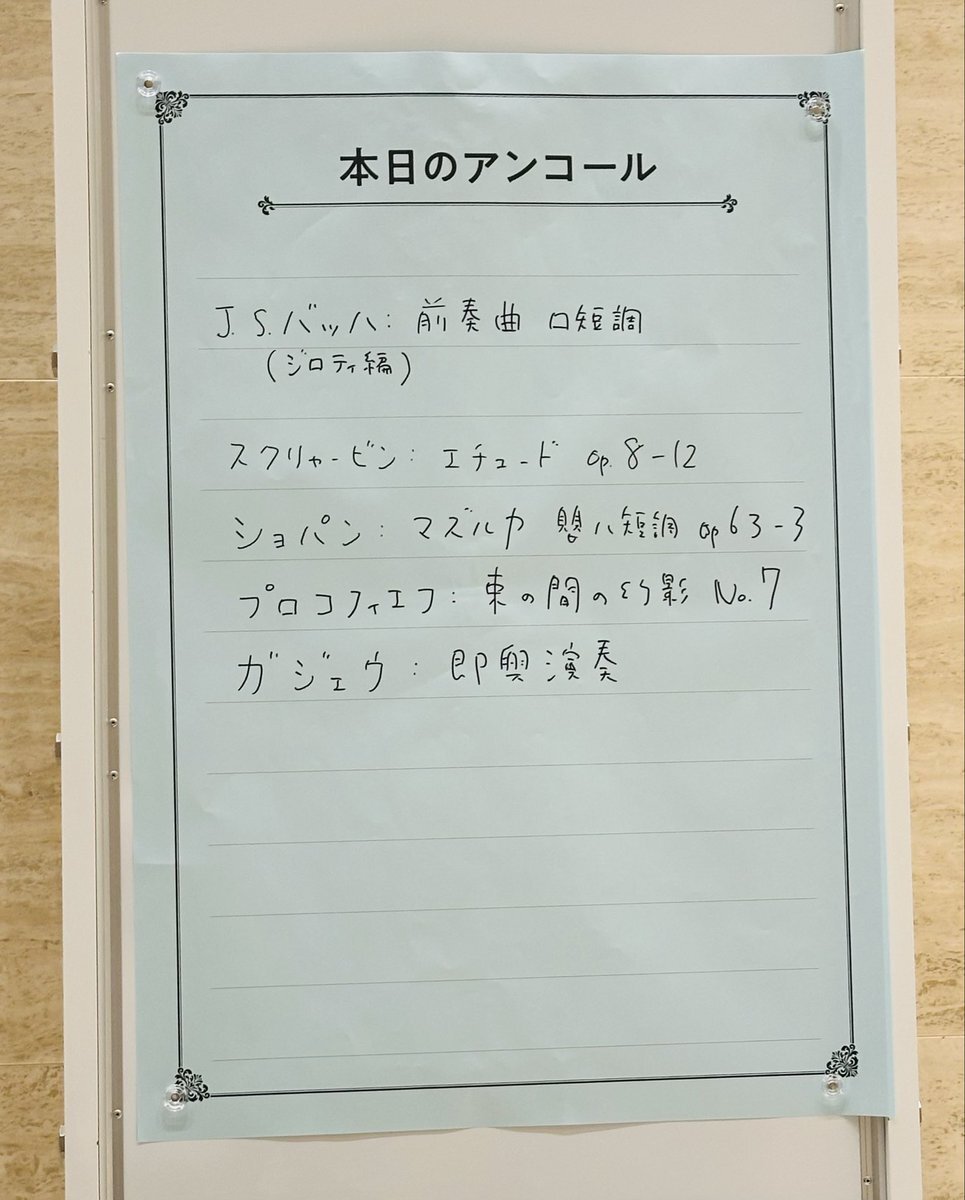 本日のアンコール
J.S.バッハ: 前奏曲 ロ短調
(ジロティ編)
スクリャービン: エチュード op.8-12
ショパン: マズルカ 嬰ハ短調 op63-3
プロコフィエフ: 束の間の幻影 No.7
ガジェヴ: 即興演奏